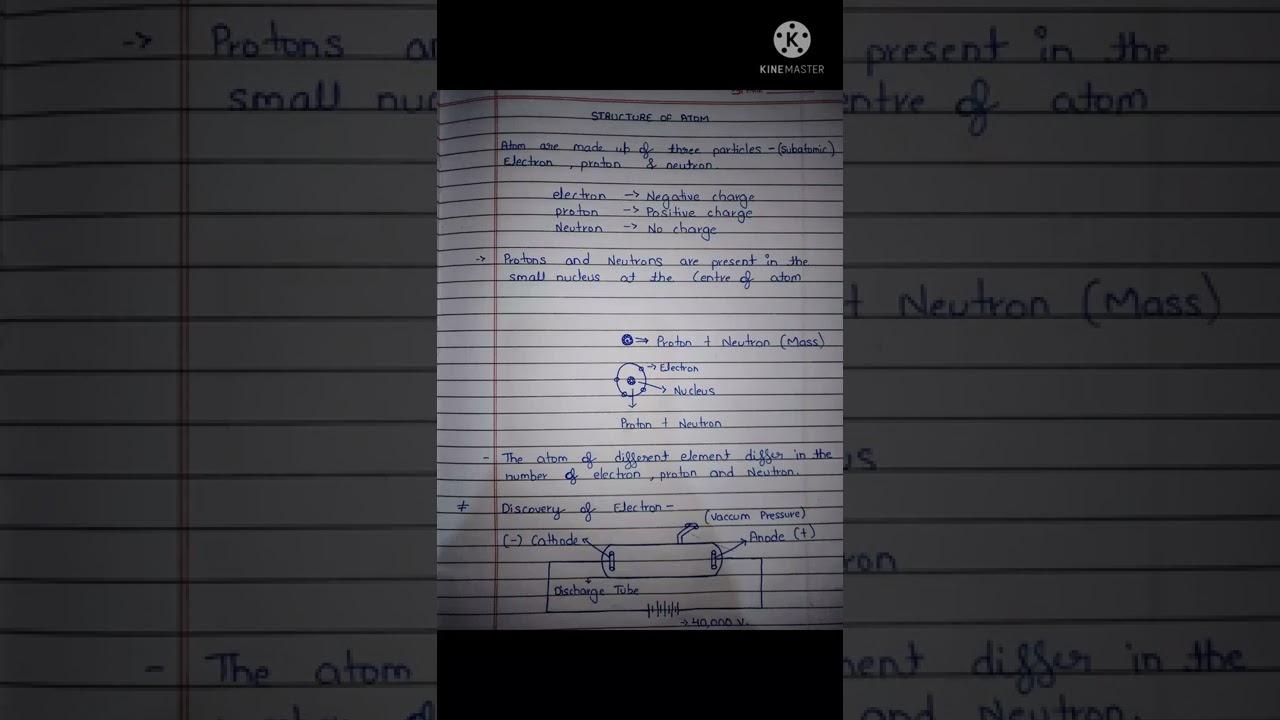 KINEMASTER
STRUCTURE OF ATOM
Atom are made up of three particles - (subatomic)
Electron , proton & neutron.
electron -> Negative charge
proton -> Positive charge
Neutron -> No charge
-> Protons and Neutrons are present in the
small nucleus at the Centre of atom
-> Proton + Neutron (Mass)
-> Electron
-> Nucleus
Proton + Neutron
- The atom of different element differ in the
number of electron , proton and Neutron.
≠ Discovery of Electron -
(Vaccum Pressure)
(-) Cathode
Anode (+)
Discharge Tube
-> 40,000 V.
-> Protons
present in the
small
centre of atom
+ Neutron (Mass)
- The atom
differ in the
and Neutron.